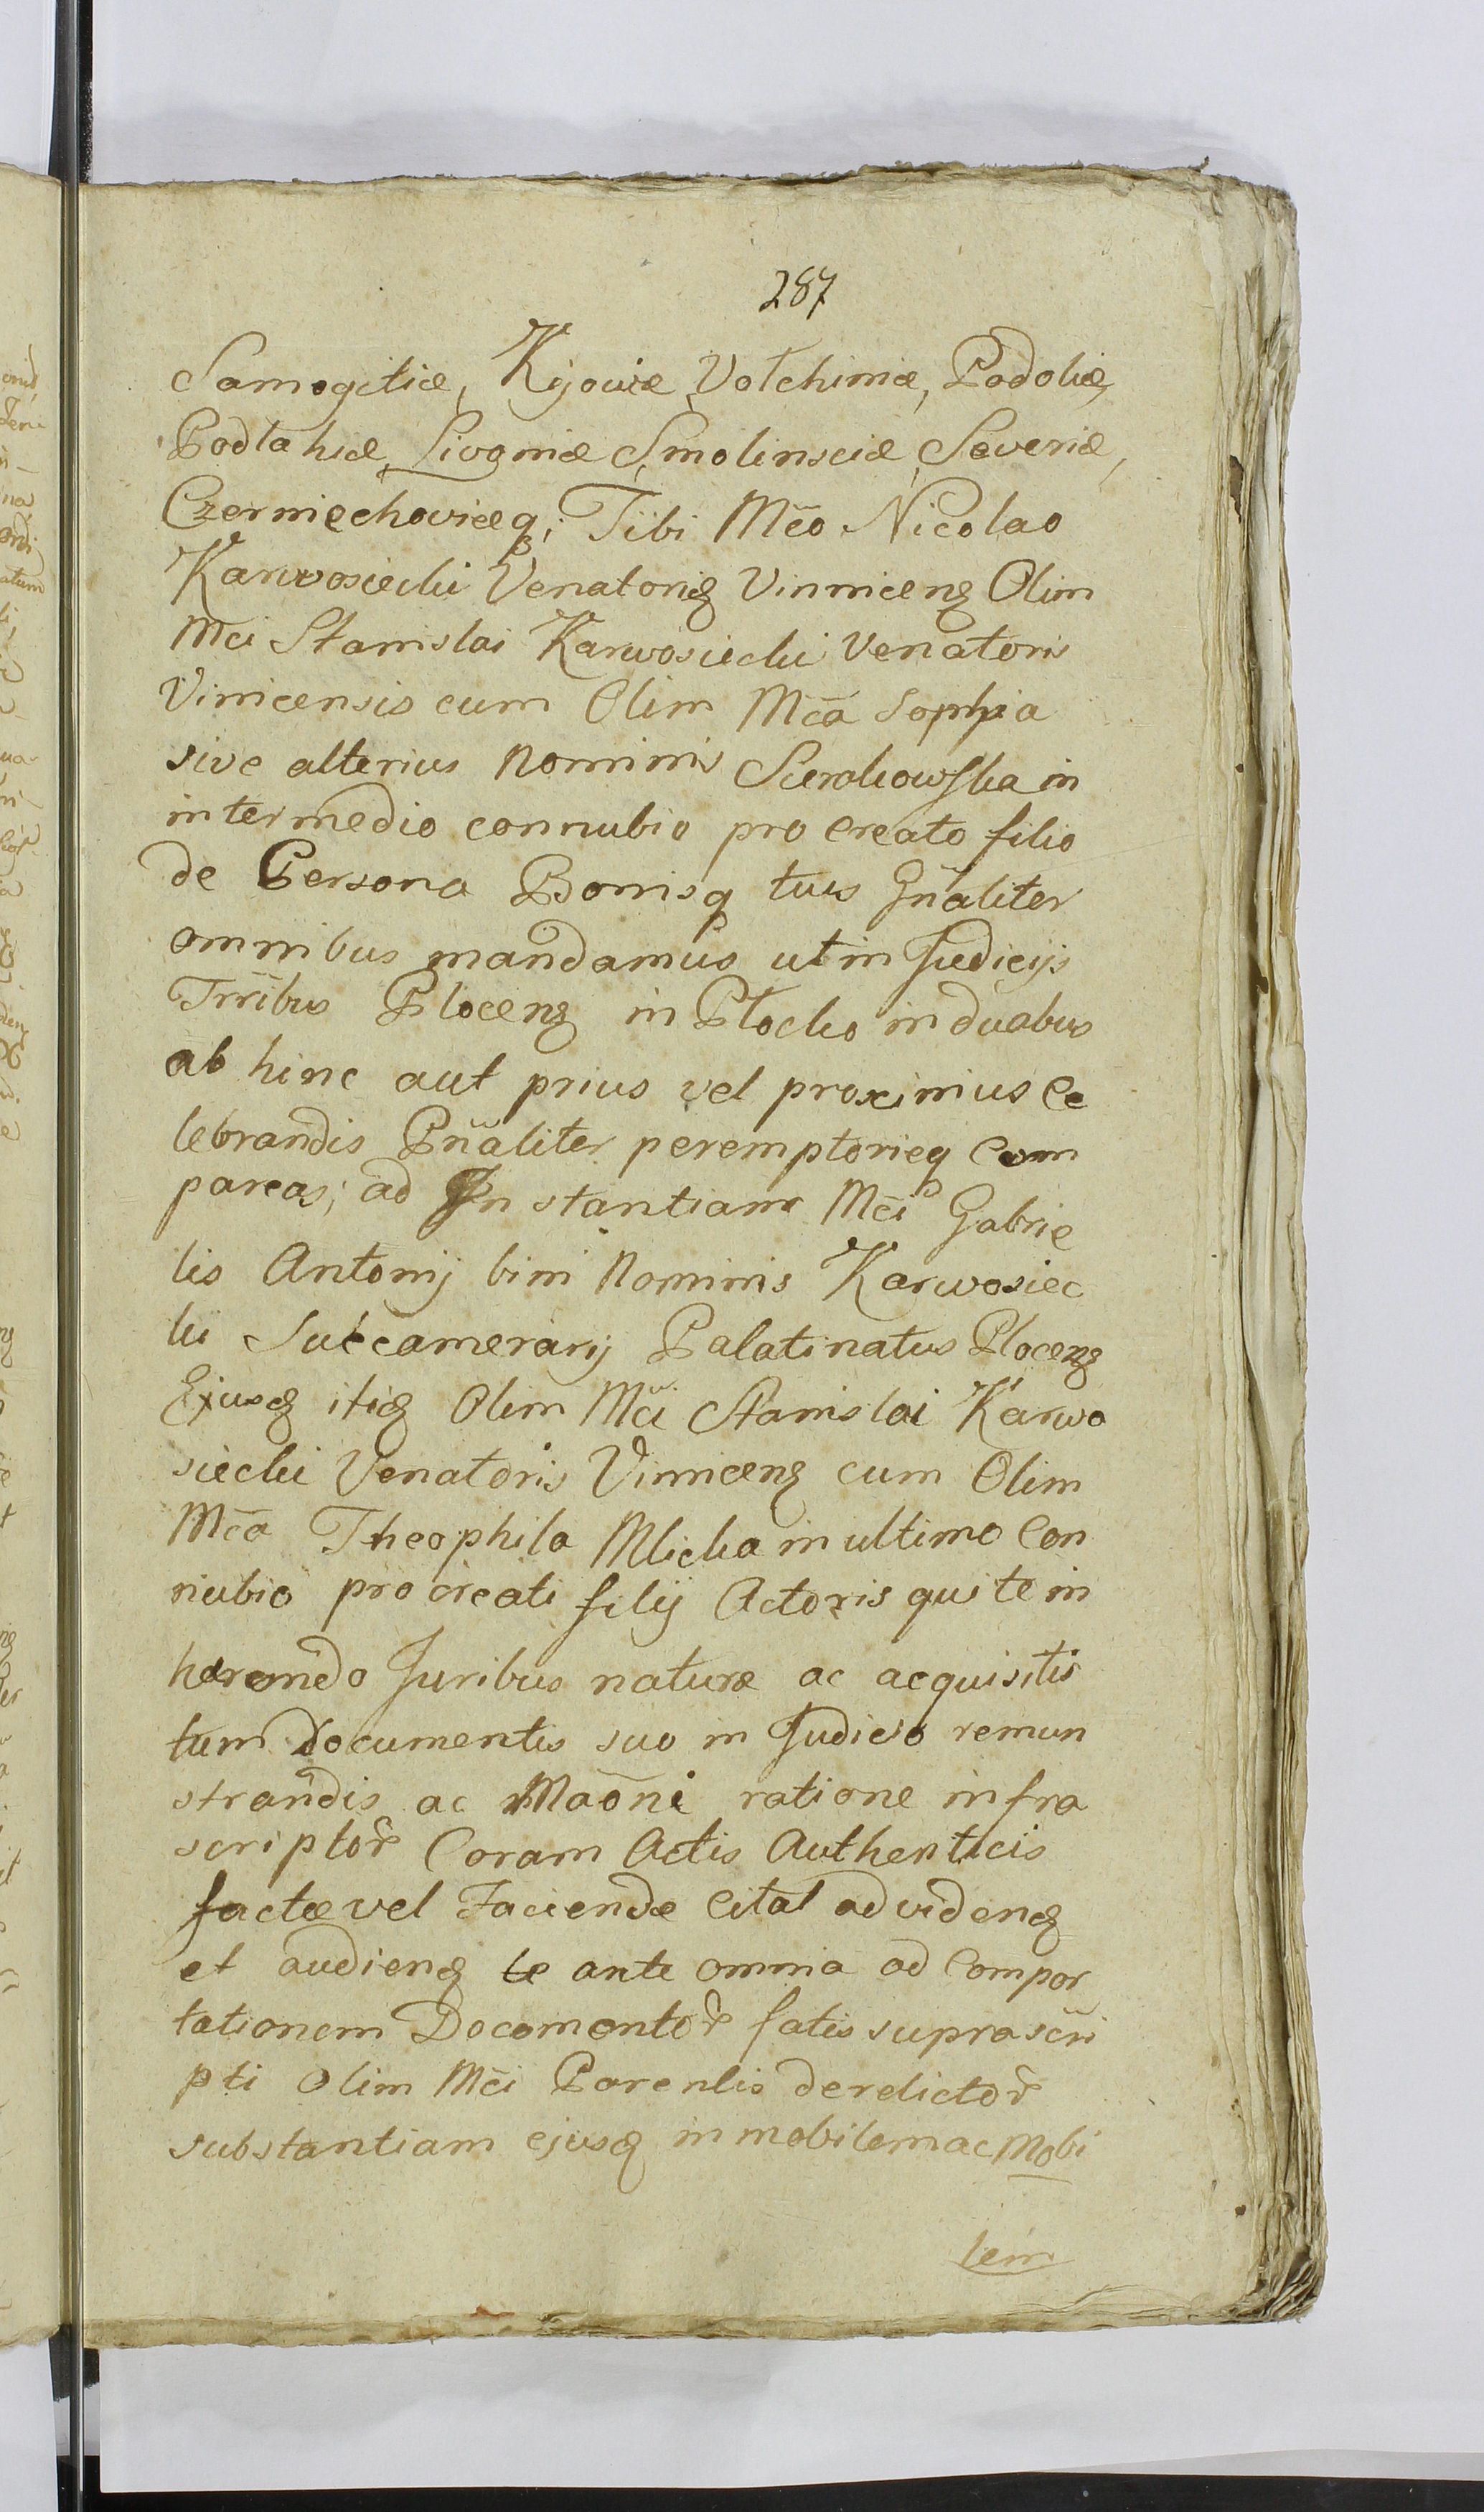 287
Samogitiæ, Kijoviæ Volchiniæ, Podoliæ,
Podlahiæ, Livoniæ Smolinsciæ, Severiæ,
Czerniechoviæq; Tibi Mco Nicolao
Karwosiecki Venatoriq Vinnicenq Olim
Mci Stanislai Karwosiecki Venatoris
Vinicensis cum Olim Mca Sophia
sive alterius Nominis Sierakowska in
intermedio connubio pro creato filio
de Persona Bonisq tuis Gnaliter
omnibus mandamus ut in Judicijs
Trribus Plocenq in Plocko in duabus
ab hinc aut prius vel proximius Ce
lebrandis Pnaliter peremptorieq Com
pareas; ad In stantiam Mci Gabrie
lis Antonij bini Nominis Karwosiec
ki Succamerarij Palatinatus Plocenq
Ejusq itiq Olim Mci Stanislai Karwo
siecki Venatoris Vinnicenq cum Olim
Mca Theophila Mlicka in ultimo Con
nubio pro creati filij Actoris qui te in
hærendo Juribus naturæ ac acquisitis
tum Documentis suo in Judicio remun
strandis ac Maoni ratione infra
scriptor Coram Actis Authenticis
factæ vel Faciendæ Citat ad videnq
et audienq te ante omnia ad Compor
tationem Documentor fatis suprascri
pti Olim Mci Parentis derelictor
substantiam ejusq in mobilem ac Mobi
lem